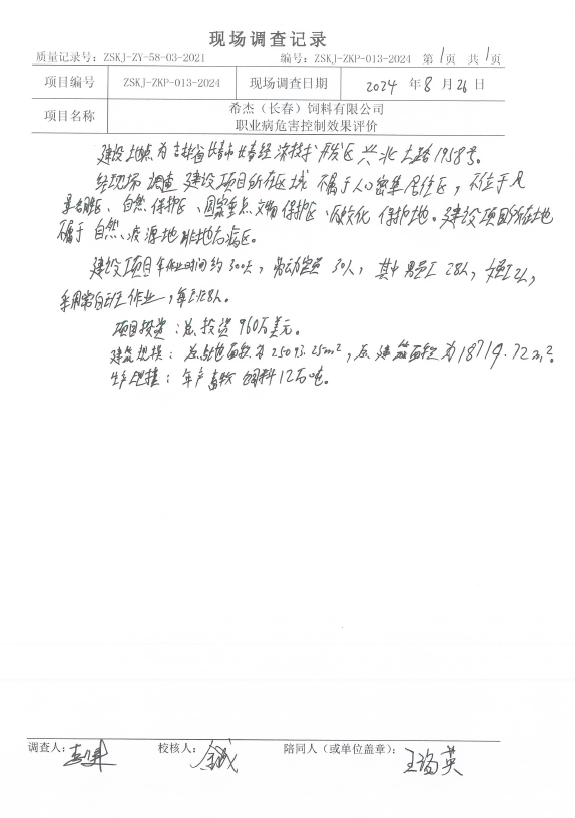 现场调查记录
质量记录号：ZSKJ-ZY-58-03-2021 编号：ZSKJ-ZKP-013-2024 第1页 共1页
项目编号 ZSKJ-ZKP-013-2024 现场调查日期 2024年8月26日
项目名称 希杰（长春）饲料有限公司
职业病危害控制效果评价
建设地点为吉林省长春市长春经济技术开发区兴北土路1958号。
经现场调查建设项目所在区域不属于人口密集居住区，不位于风
景名胜区、自然保护区、国家重点文物保护区、历史文化保护地。建设项目所在地
不属于自然疫源地和地方病区。
建设项目年作业时间约300天，劳动定员30人，其中男工28人，女工2人，
采用常白班工作业，每班8h。
项目投资：总投资960万美元。
建筑规模：总占地面积为25093.25m²，总建筑面积为18719.72m²。
生产规模：年产畜牧饲料12万吨。
调查人： 校核人： 陪同人（或单位盖章）：